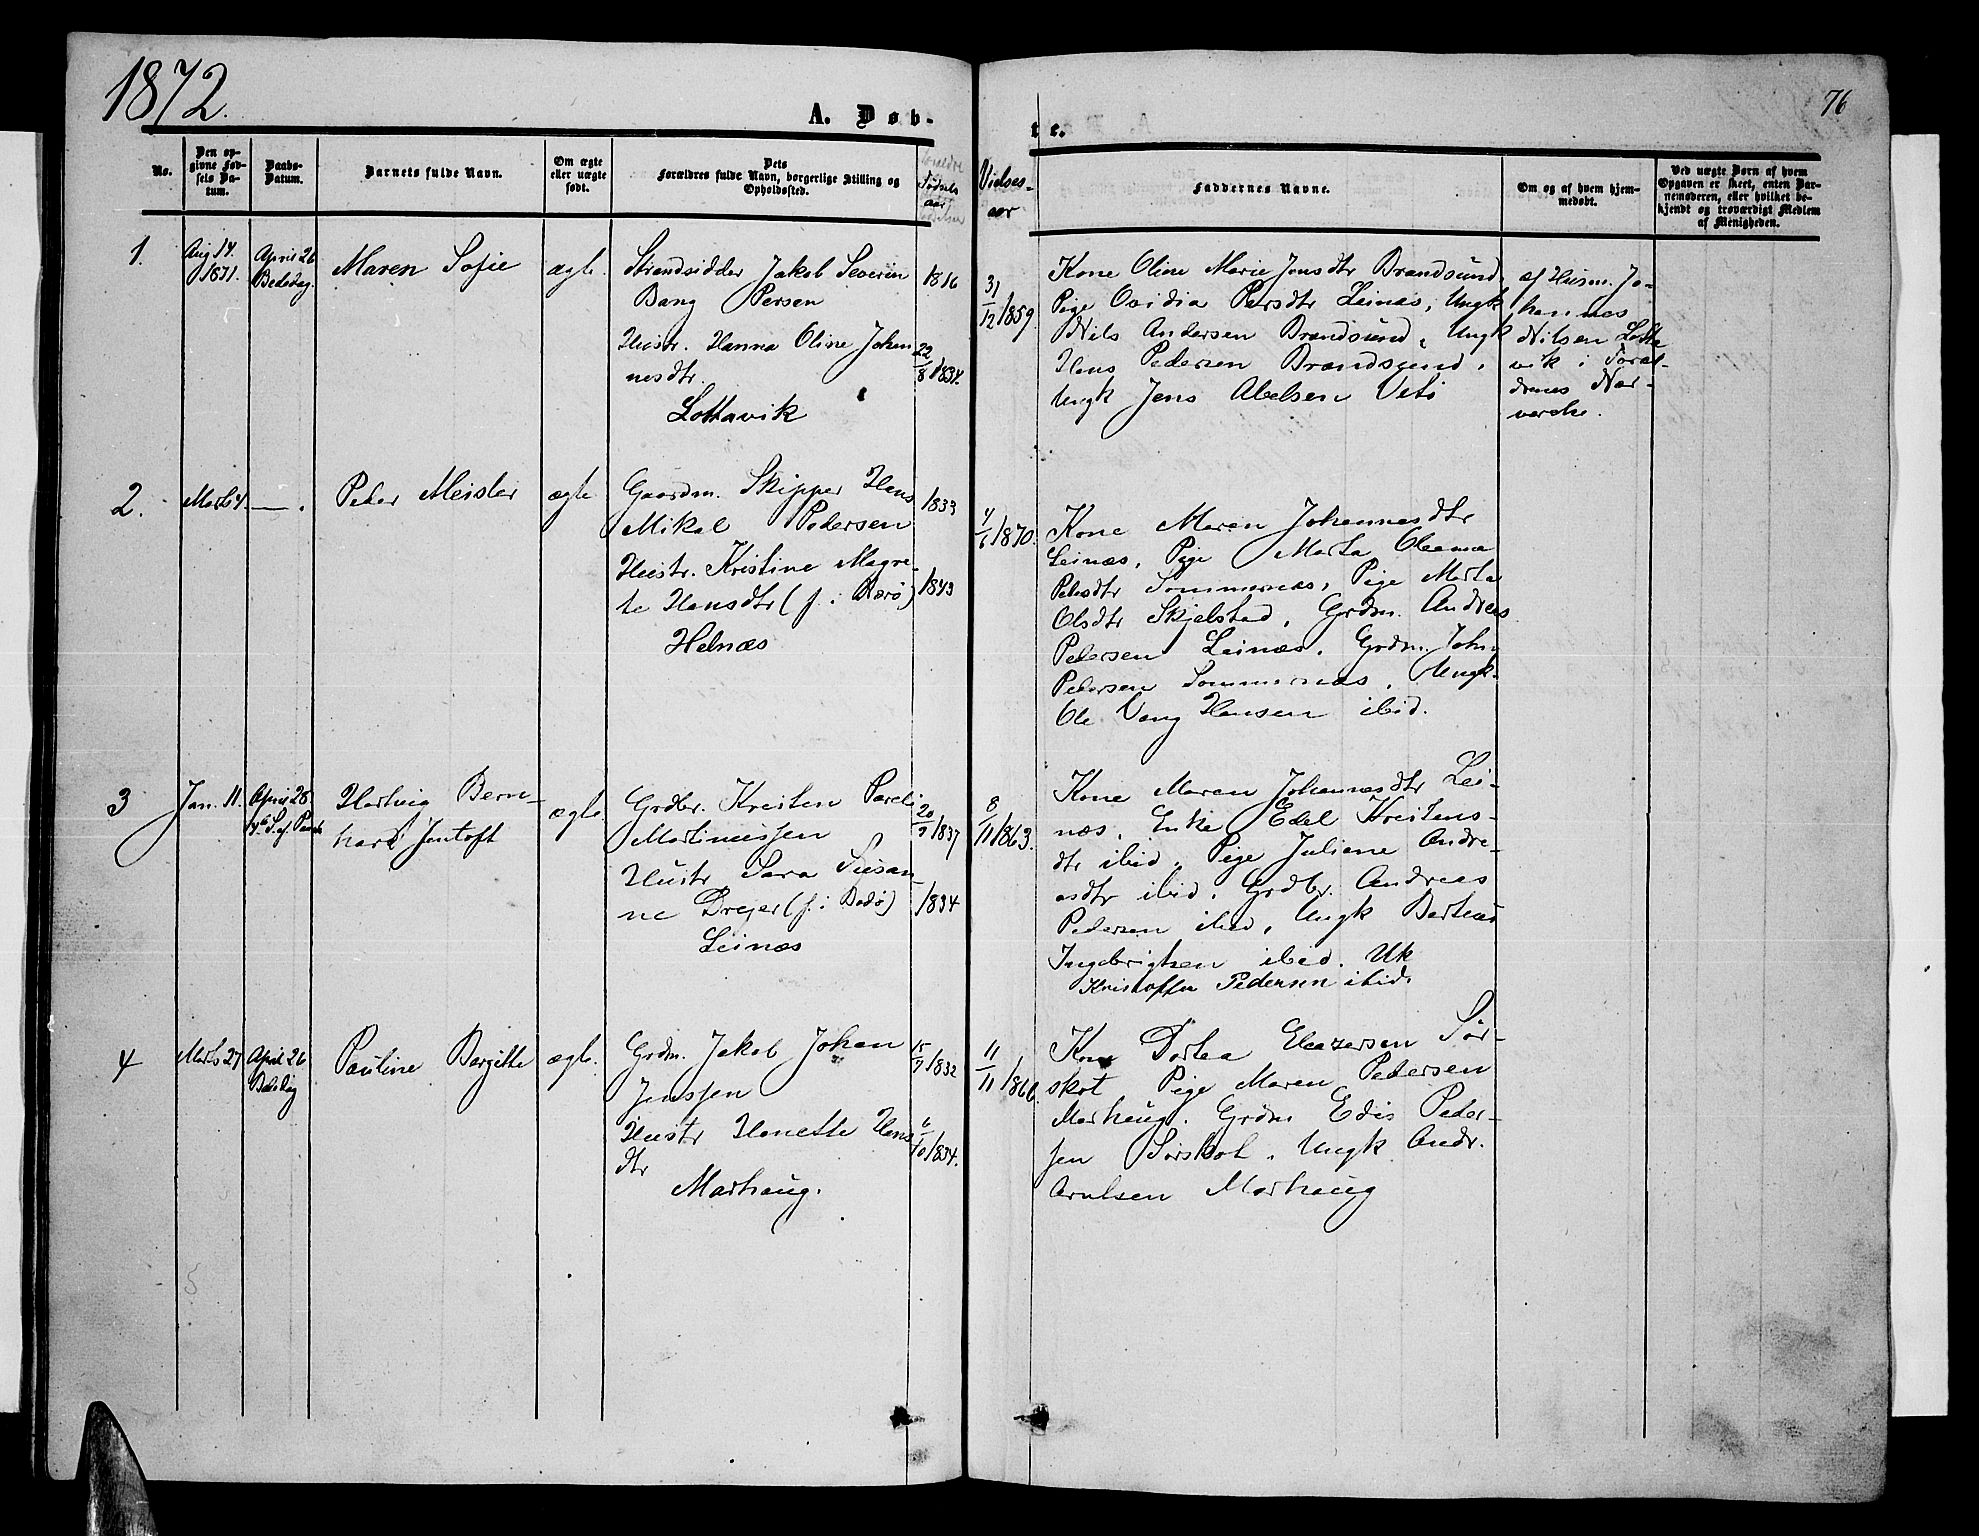 1872.
76
A. Døb-
te.
No.
Den op-
givne Fød-
sels Da-
tum.
Daabs-
Datum.
Barnets fulde Navn.
Om ægte
eller uægte
født.
Dets
Forældres fulde Navn, borgerlige Stilling og
Opholdssted.
Fødsels
aar
Vielses-
aar
Faddernes Navne.
Om og af hvem hjem-
medøbt.
Ved uægte Børn af hvem
Opgaven er skeet, enten Bar-
nemoderen, eller hvilket be-
kjendt og troværdigt Medlem
af Menigheden.
1.
Aug 14.
1871.
April 26
Bededag.
Maren Sofie
ægte.
Strandsidder Jakob Severin
Bang Persen
Hustr. Hanna Oline Johan
nesdtr.
Lottavik
1816
22/8 1834.
31/12 1859.
Kone Oline Marie Jensdtr Brandsund.
Pige Ovidia Persdtr Leinæs, Ungk
Nils Andersen Brandsund, Ungk
Hans Pedersen Brandsund,
Ungk Jens Abelsen Vetø
af Husm. Jo-
hannes
Nilsen Lotta
vik i Foræl-
drenes Nær-
værelse.
2.
Marts 4.
— .
Peder Meisler
ægte
Gaardm. Skipper Hans
Mikal Pedersen
Hustr. Kristine Magre-
te Hansdtr (f. i Rørø)
Helnæs
1833
1843
4/6 1870.
Kone Maren Johannesdtr
Leinæs, Pige Marta Oleana
Pedsdtr Sommernæs, Pige Marta
Olsdtr Skjelstad, Grdm. Andreas
Pedersen Leinæs, Grdm. John
Pedersen Sommernæs, Ungk.
Ole Vang Hansen ibid.
3
Jan. 11.
April 28
4de S. ef. Paaske
Hartvig Bern-
hard Jentoft
ægte.
Grdbr. Kresten Pareli
Martinussen
Hustr Sara Susan-
ne Drejer (f. i Bodø)
Leinæs
20/9 1837
1834
8/11 1863.
Kone Maren Johannesdtr Lei-
næs, Enke Edel Kristens-
dtr ibid, Pige Juliane Andre-
asdtr ibid, Grdbr. Andreas
Pedersen ibid, Ungk Berteus
Ingebrigtsen ibid. Uk
Kristoffer Pedersen ibid.
4
Marts 27
April 26
Bededag
Pauline Bergitte
ægte.
Grdm. Jakob Johan
Jenssen
Hustr Hanette Hans
dtr
Marhaug.
15/9 1832
6/10 1834.
11/11 1860.
Kone Dortea Eleazersen Sør-
skot Pige Maren Pedersen
Marhaug. Grdm Edis Peder-
sen Sørskot, Ungk Andr.
Arntsen Marhaug